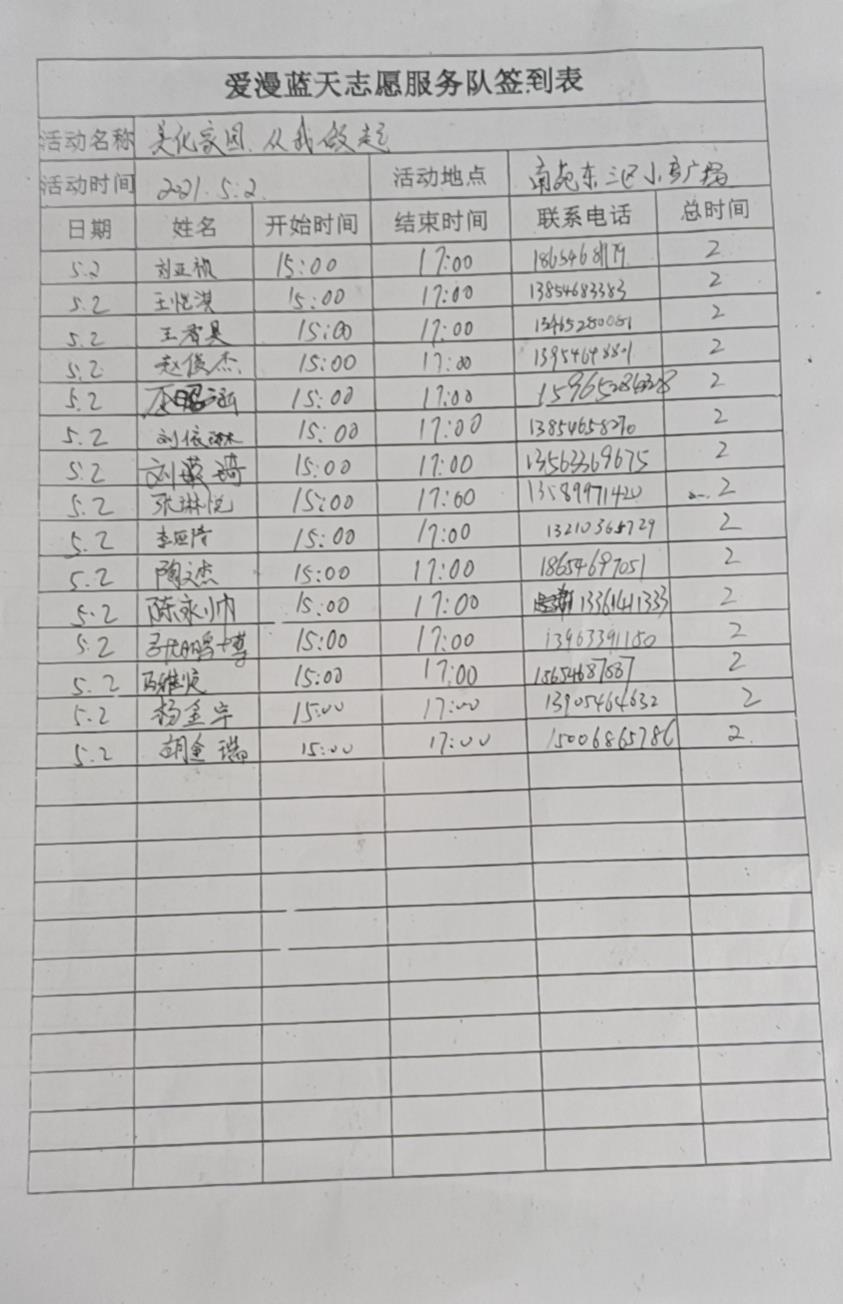 爱漫蓝天志愿服务队签到表
活动名称 美化家园、从我做起
活动时间 2021.5.2. 活动地点 南苑东三区小李广场
日期 姓名 开始时间 结束时间 联系电话 总时间
5.2 刘亚祯 15:00 17:00 2
5.2 王恺淇 15:00 17:00 13854683383 2
5.2 王 昊 15:00 17:00 2
5.2 赵俊杰 15:00 17:00 2
5.2 15:00 17:00 2
5.2 刘依琳 15:00 17:00 13854658270 2
5.2 刘 琦 15:00 17:00 13563369675 2
5.2 张琳悦 15:00 17:00 13589971420 2
5.2 李 15:00 17:00 13210365729 2
5.2 陶文杰 15:00 17:00 18654697051 2
5.2 陈永帅 15:00 17:00 13361411333 2
5.2 博 15:00 17:00 13963391180 2
5.2 15:00 17:00 2
5.2 杨金宇 15:00 17:00 13905464632 2
5.2 胡金瑞 15:00 17:00 15006865786 2